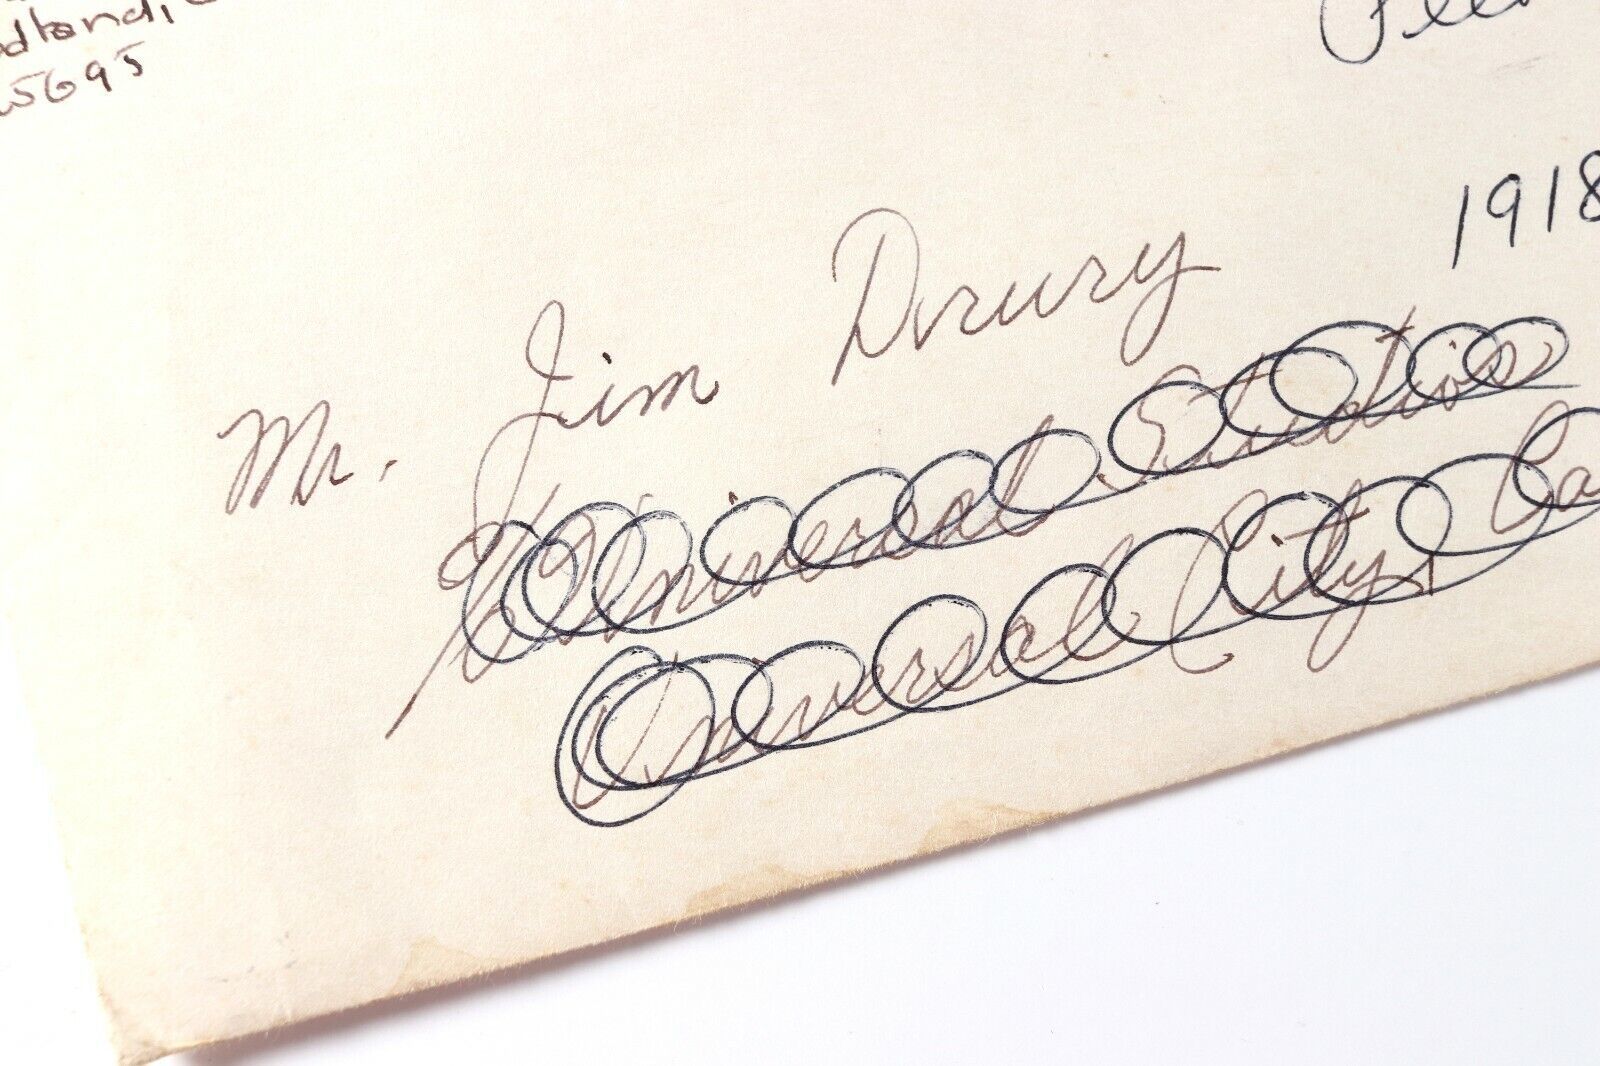 5695
1918
Mr. Jim Drury
% Universal Studios
Universal City, Ca